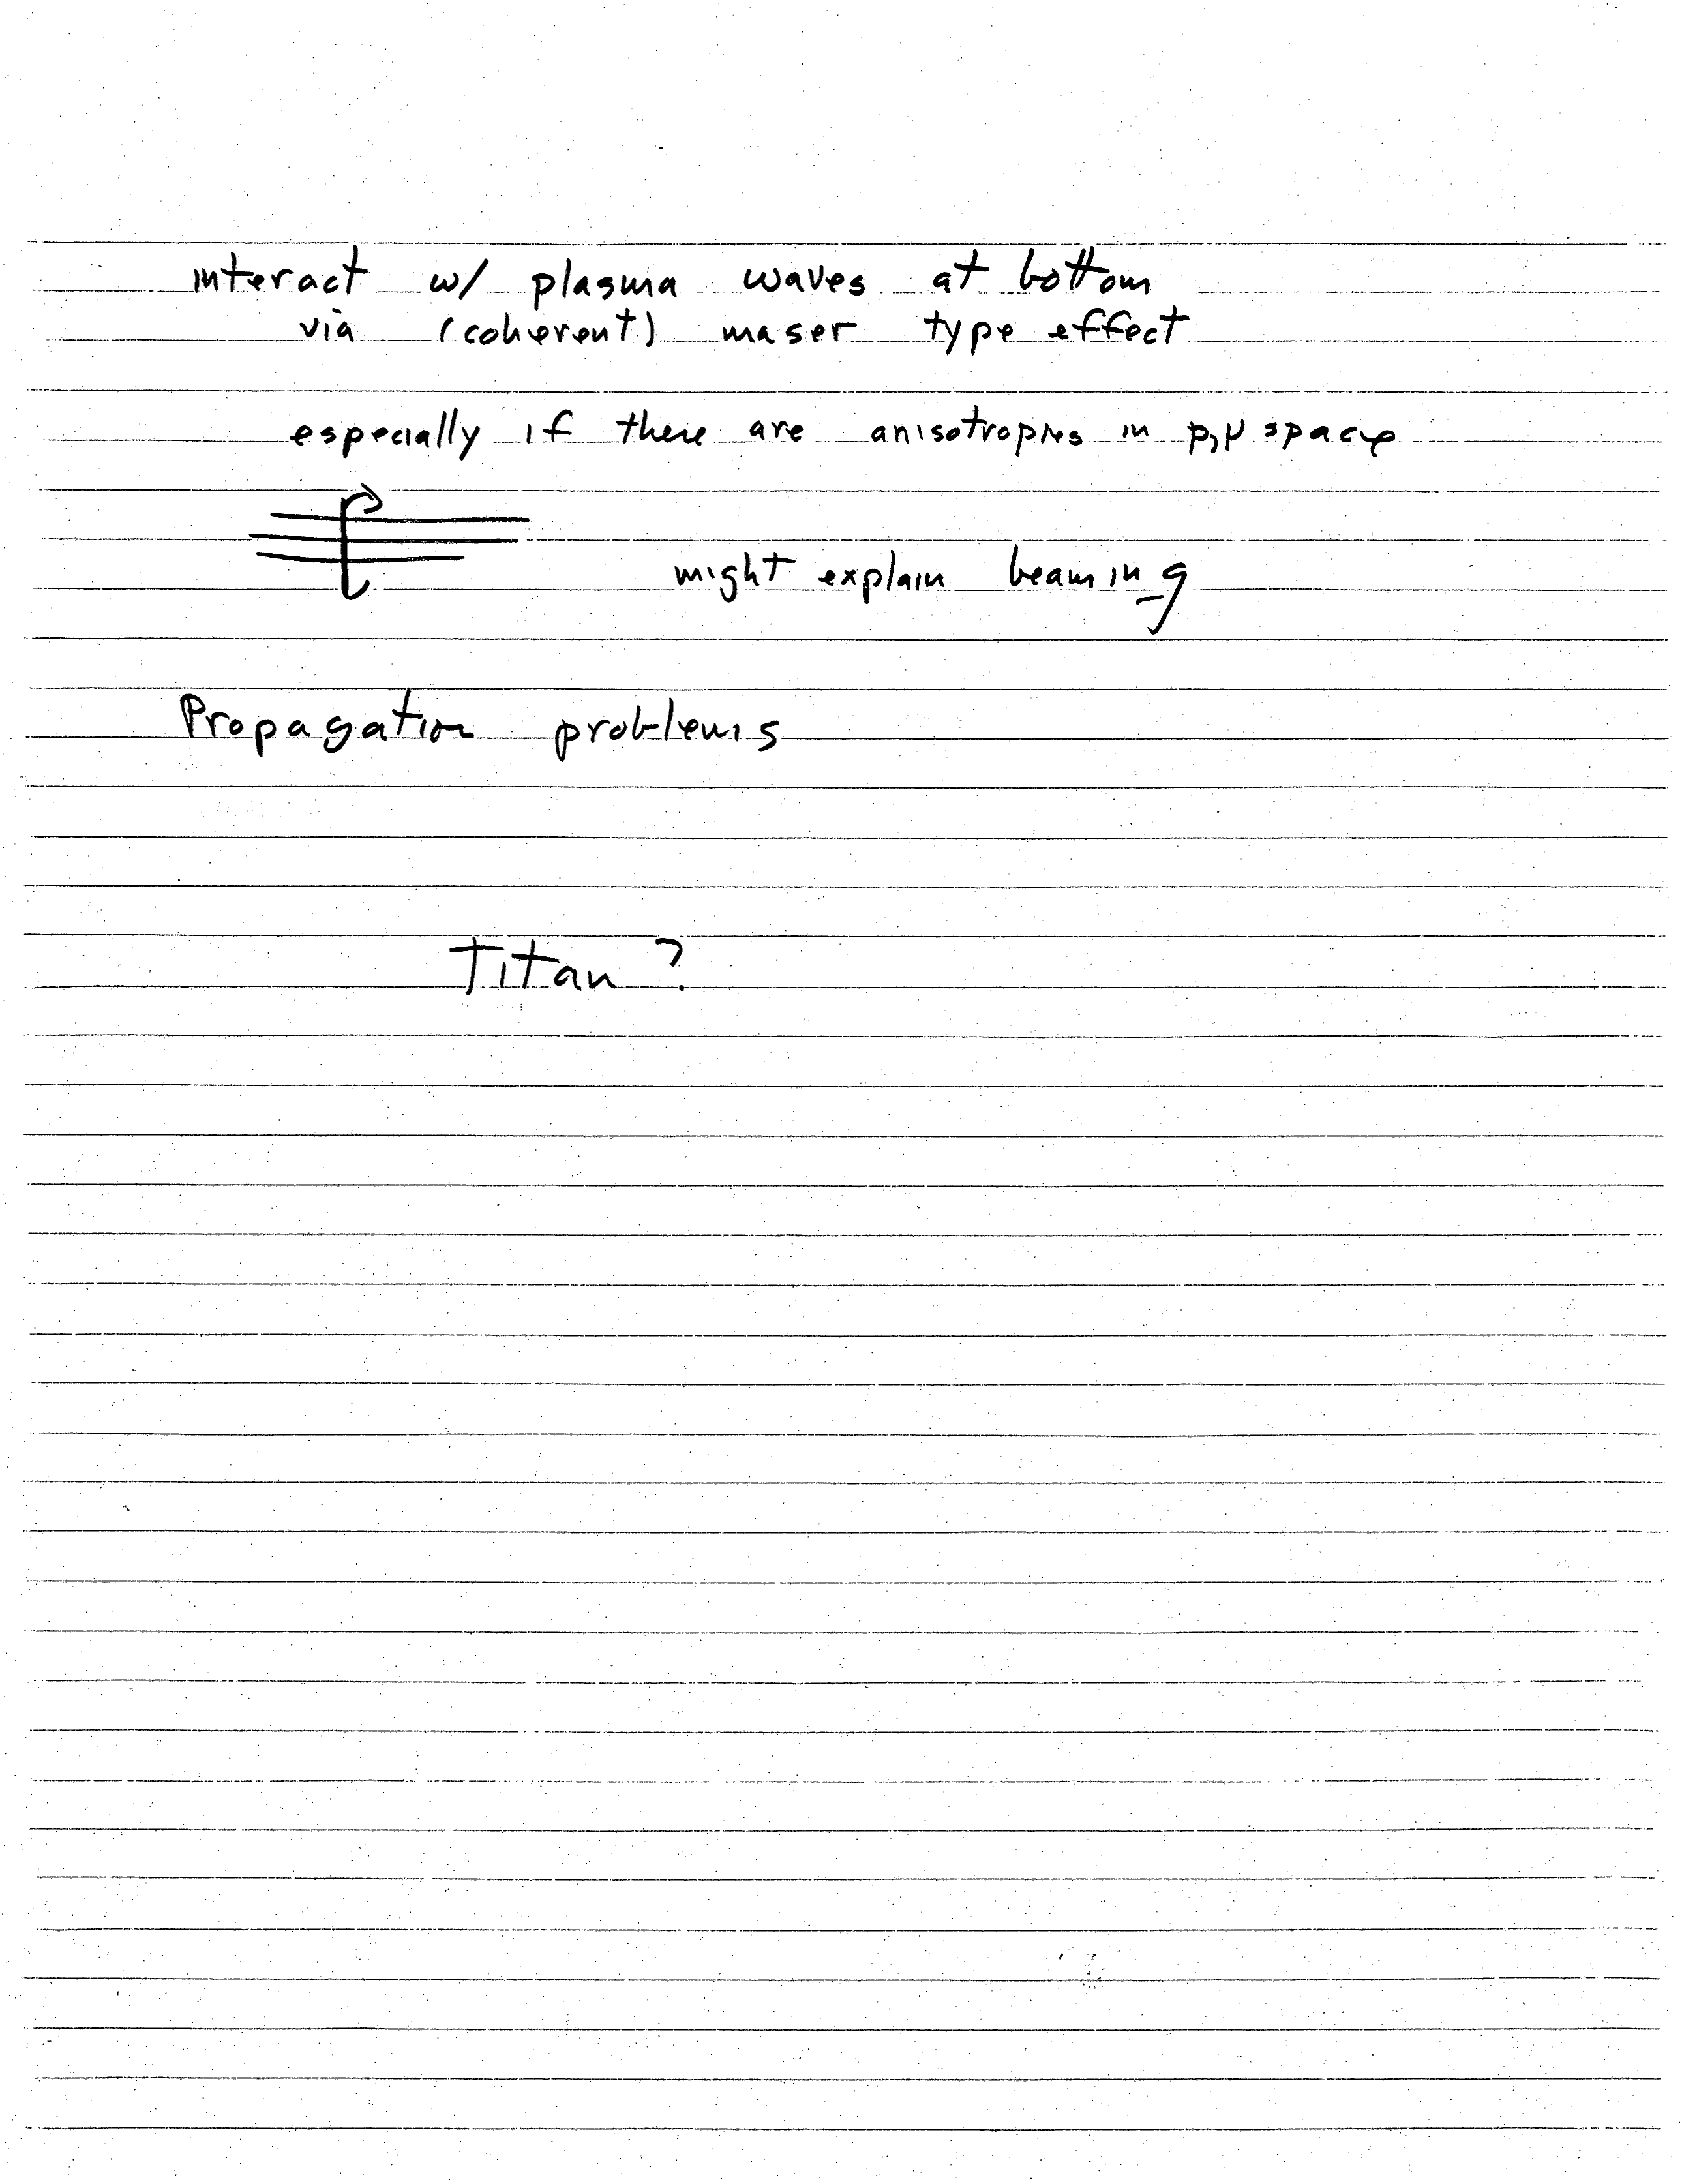 interact w/ plasma waves at bottom
via (coherent) maser type effect
especially if there are anisotropies in p,μ space
might explain beaming
Propagation problems
Titan?